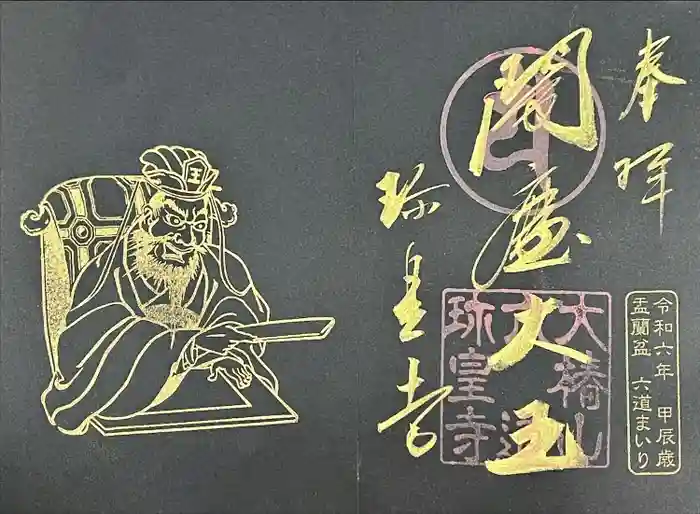 奉拝
閻魔大王
珍皇寺
大椿山
六道
珍皇寺
令和六年 甲辰歳
盂蘭盆 六道まいり
王